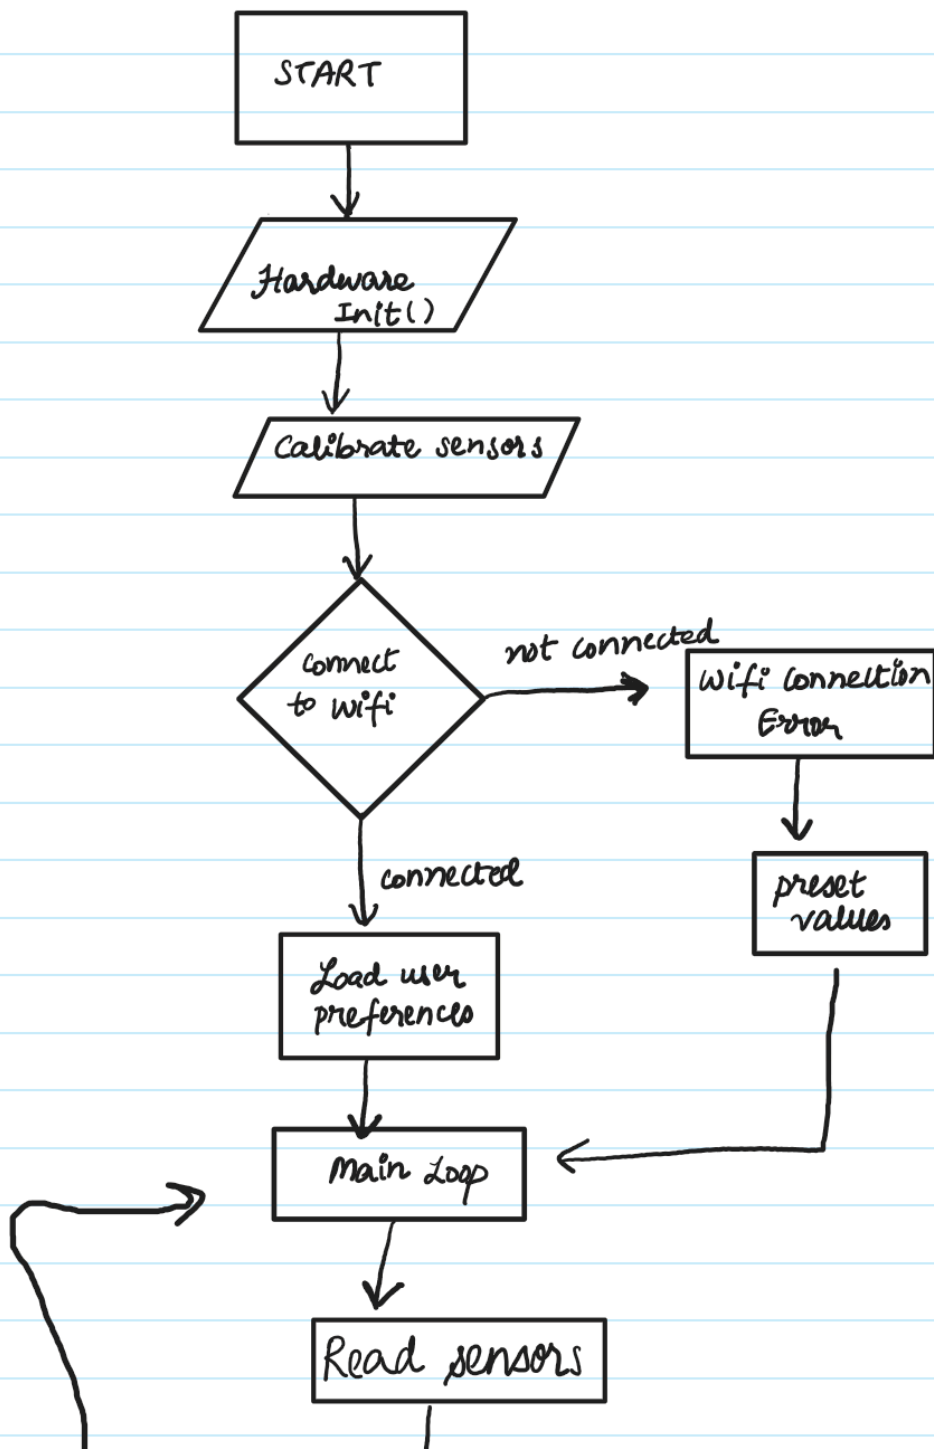 START
Hardware
Init()
Calibrate sensors
Connect
to wifi
not connected
Wifi Connection
Error
connected
preset
values
Load user
preferences
Main Loop
Read sensors